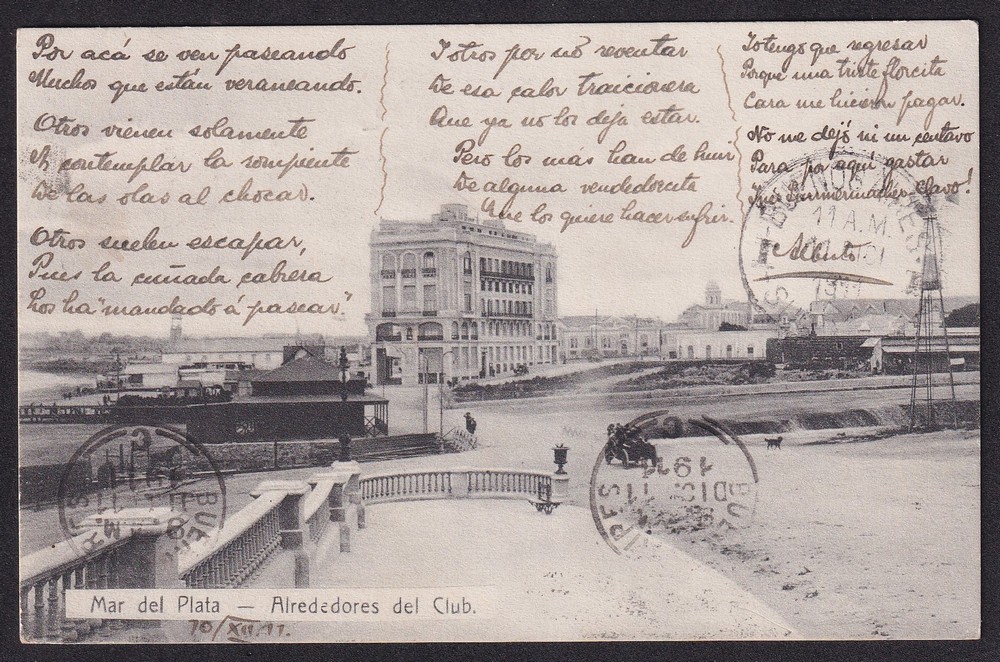 Por acá se ven paseando
Muchos que están veraneando.
Otros vienen solamente
A contemplar la rompiente
De las olas al chocar.
Otros suelen escapar,
Pues la cuñada cabrera
Los ha "mandado á pasear".
Y otros por nó reventar
De esa calor traicionera
Que ya no los deja estar.
Pero los más han de huir
De alguna vendedorcita
Que los quiere hacer sufrir.
Yo tengo que regresar
Porque una triste florcita
Cara me hicieron pagar.
No me dejó ni un centavo
Para por aquí gastar
Clavo!
Alberto
11 A.M.
BUENOS AIRES
1911
BUEN
11
1911
11 DIC
BUE
Mar del Plata — Alrededores del Club.
10/XII.11.